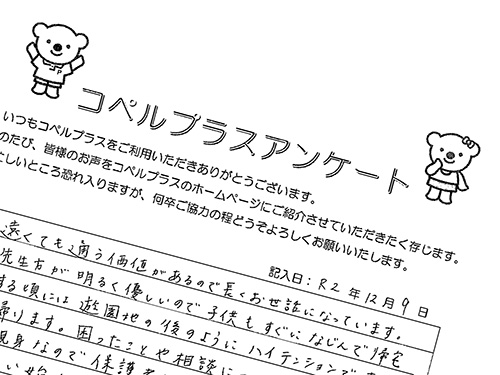 コペルプラスアンケート
いつもコペルプラスをご利用いただきありがとうございます。
のたび、皆様のお声をコペルプラスのホームページにご紹介させていただきたく存じます。
しいところ恐れ入りますが、何卒ご協力の程どうぞよろしくお願いいたします。
記入日：R2年12月9日
遠くても通う価値があるので長くお世話になっています。
先生方が明るく優しいので子供もすぐになじんで帰宅
する頃には遊園地の後のようにハイテンションで
帰ります。困ったことや相談に
身なので保護者